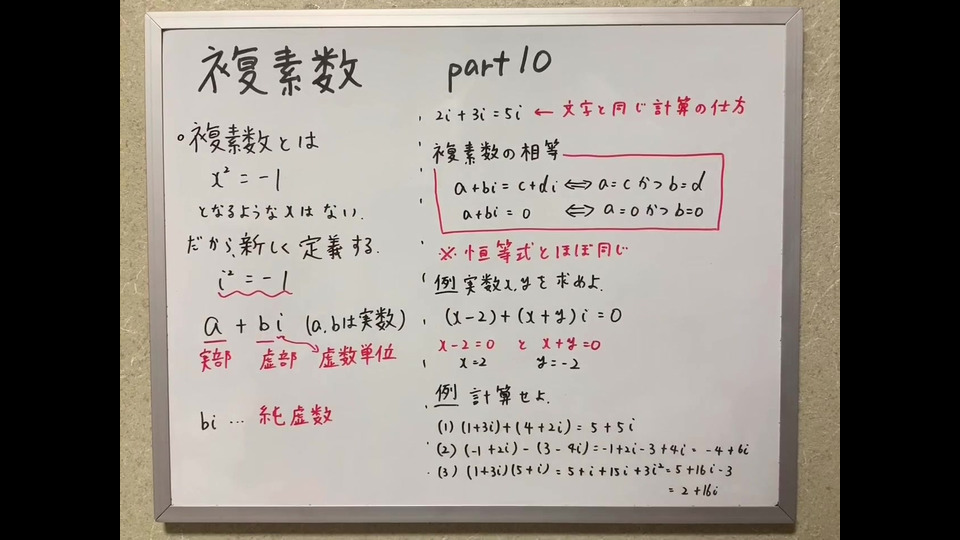 複素数 part10
○複素数とは
x² = -1
となるようなxはない.
だから、新しく定義する.
i² = -1
a + bi (a,bは実数)
実部 虚部 虚数単位
bi … 純虚数
2i + 3i = 5i ← 文字と同じ計算の仕方
複素数の相等
a+bi = c+di ⇔ a=cかつb=d
a+bi = 0 ⇔ a=0かつb=0
※恒等式とほぼ同じ
例 実数x,yを求めよ.
(x-2)+(x+y)i = 0
x-2=0 と x+y=0
x=2 y=-2
例 計算せよ.
(1) (1+3i)+(4+2i) = 5+5i
(2) (-1+2i)-(3-4i)=-1+2i-3+4i=-4+6i
(3) (1+3i)(5+i)=5+i+15i+3i²=5+16i-3
=2+16i